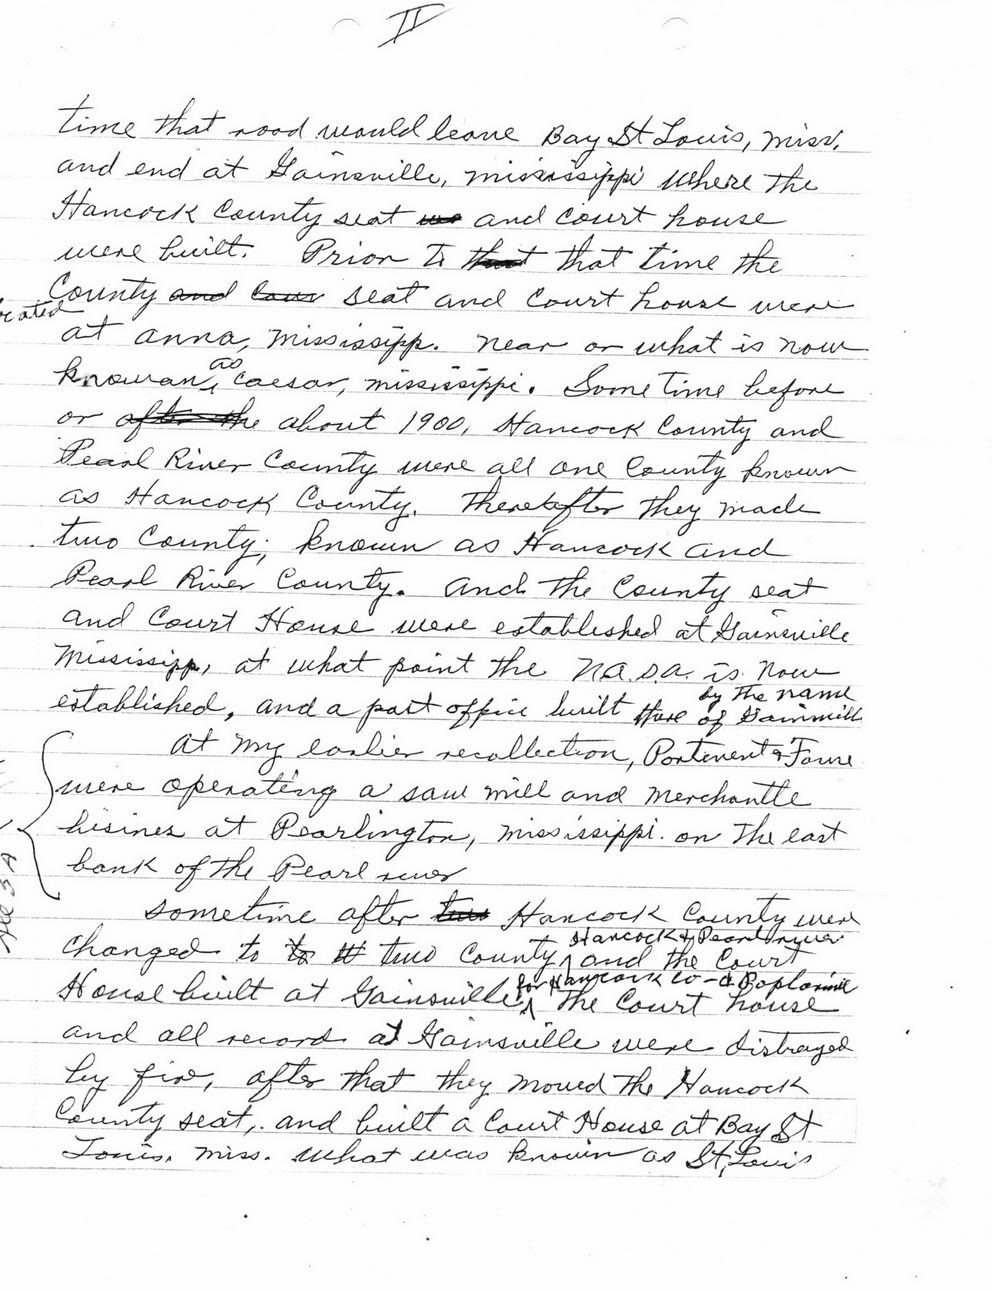 II
time that road would leave Bay St Louis, Miss.
and end at Gainsville, Mississippi where the
Hancock County seat and court house
were built. Prior to that that time the
County and Cour seat and Court house were
located
at anna, Mississipp. near or what is now
as
knowan, Caesar, Mississippi. Some time before
or after the about 1900, Hancock County and
Pearl River County were all one County known
as Hancock County. Thereafter they made
two County; known as Hancock and
Pearl River County. And the County seat
and Court House were established at Gainsville
Mississipp, at what point the N.a.s.a. is now
by the name
established, and a post office built there of Gainsvill
At my earlier recollection, Portevent & Favre
were operating a saw mill and merchantle
bisines at Pearlington, Mississippi. on the east
bank of the Pearl river
See 3 A
sometime after two Hancock County were
Hancock & Pearl river
changed to to two County, and the Court
for Hancock Co - & Poplarville
House built at Gainsville, the Court house
and all record at Gainsville were distrayed
by fire, after that they moved the Hancock
County seat, and built a Court House at Bay St
Louis. Miss. what was known as St, Louis